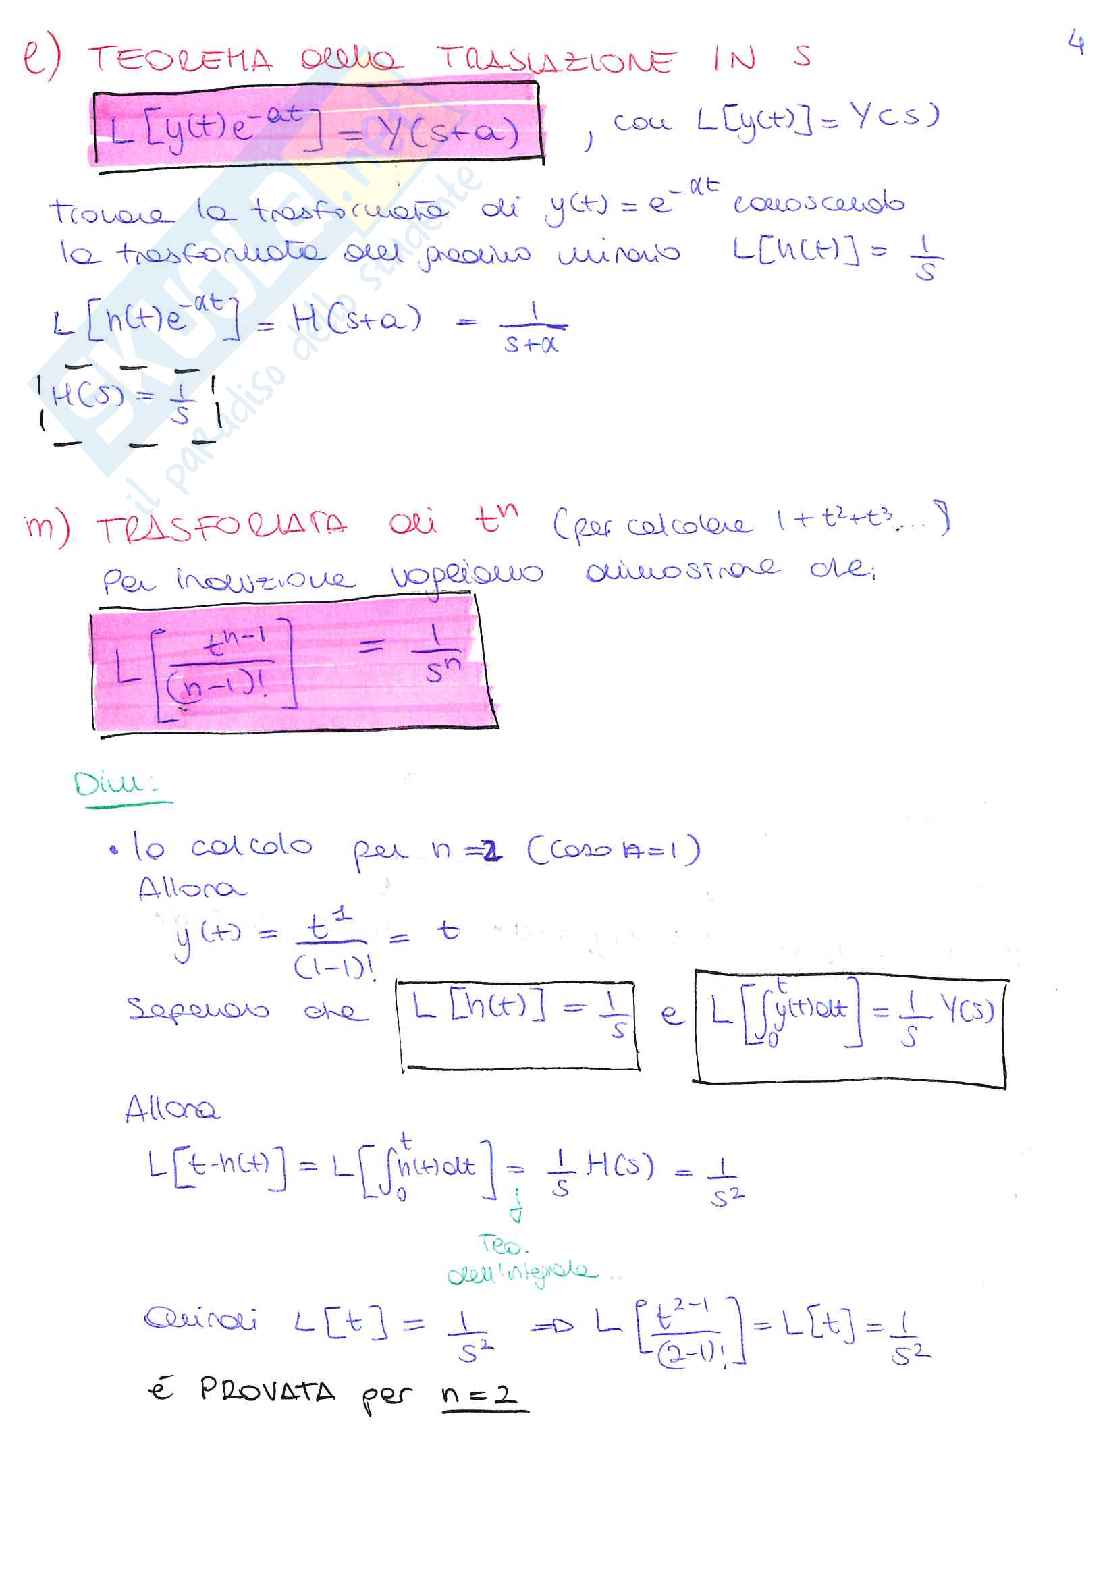 4
l) TEOREMA della TRASLAZIONE IN S
L[y(t)e^-αt] = Y(s+a) , con L[y(t)] = Y(s)
trovare la trasformata di y(t) = e^-αt conoscendo
la trasformata del gradino unitario L[h(t)] = 1/s
L[h(t)e^-αt] = H(s+a) = 1/(s+α)
H(s) = 1/s
SKUOLA.net
il paradiso dello studente
m) TRASFORMATA di t^n (per calcolare 1+t²+t³...)
Per induzione vogliamo dimostrare che:
L[t^(n-1)/(n-1)!] = 1/s^n
Dim:
• lo calcolo per n=2 (caso n=1)
Allora
y(t) = t^1/(1-1)! = t
Sapendo che L[h(t)] = 1/s e L[∫₀^t y(t)dt] = 1/s Y(s)
Allora
L[t·h(t)] = L[∫₀^t h(t)dt] = 1/s H(s) = 1/s²
Teo.
dell'integrale..
Quindi L[t] = 1/s² => L[t^(2-1)/(2-1)!] = L[t] = 1/s²
é PROVATA per n=2